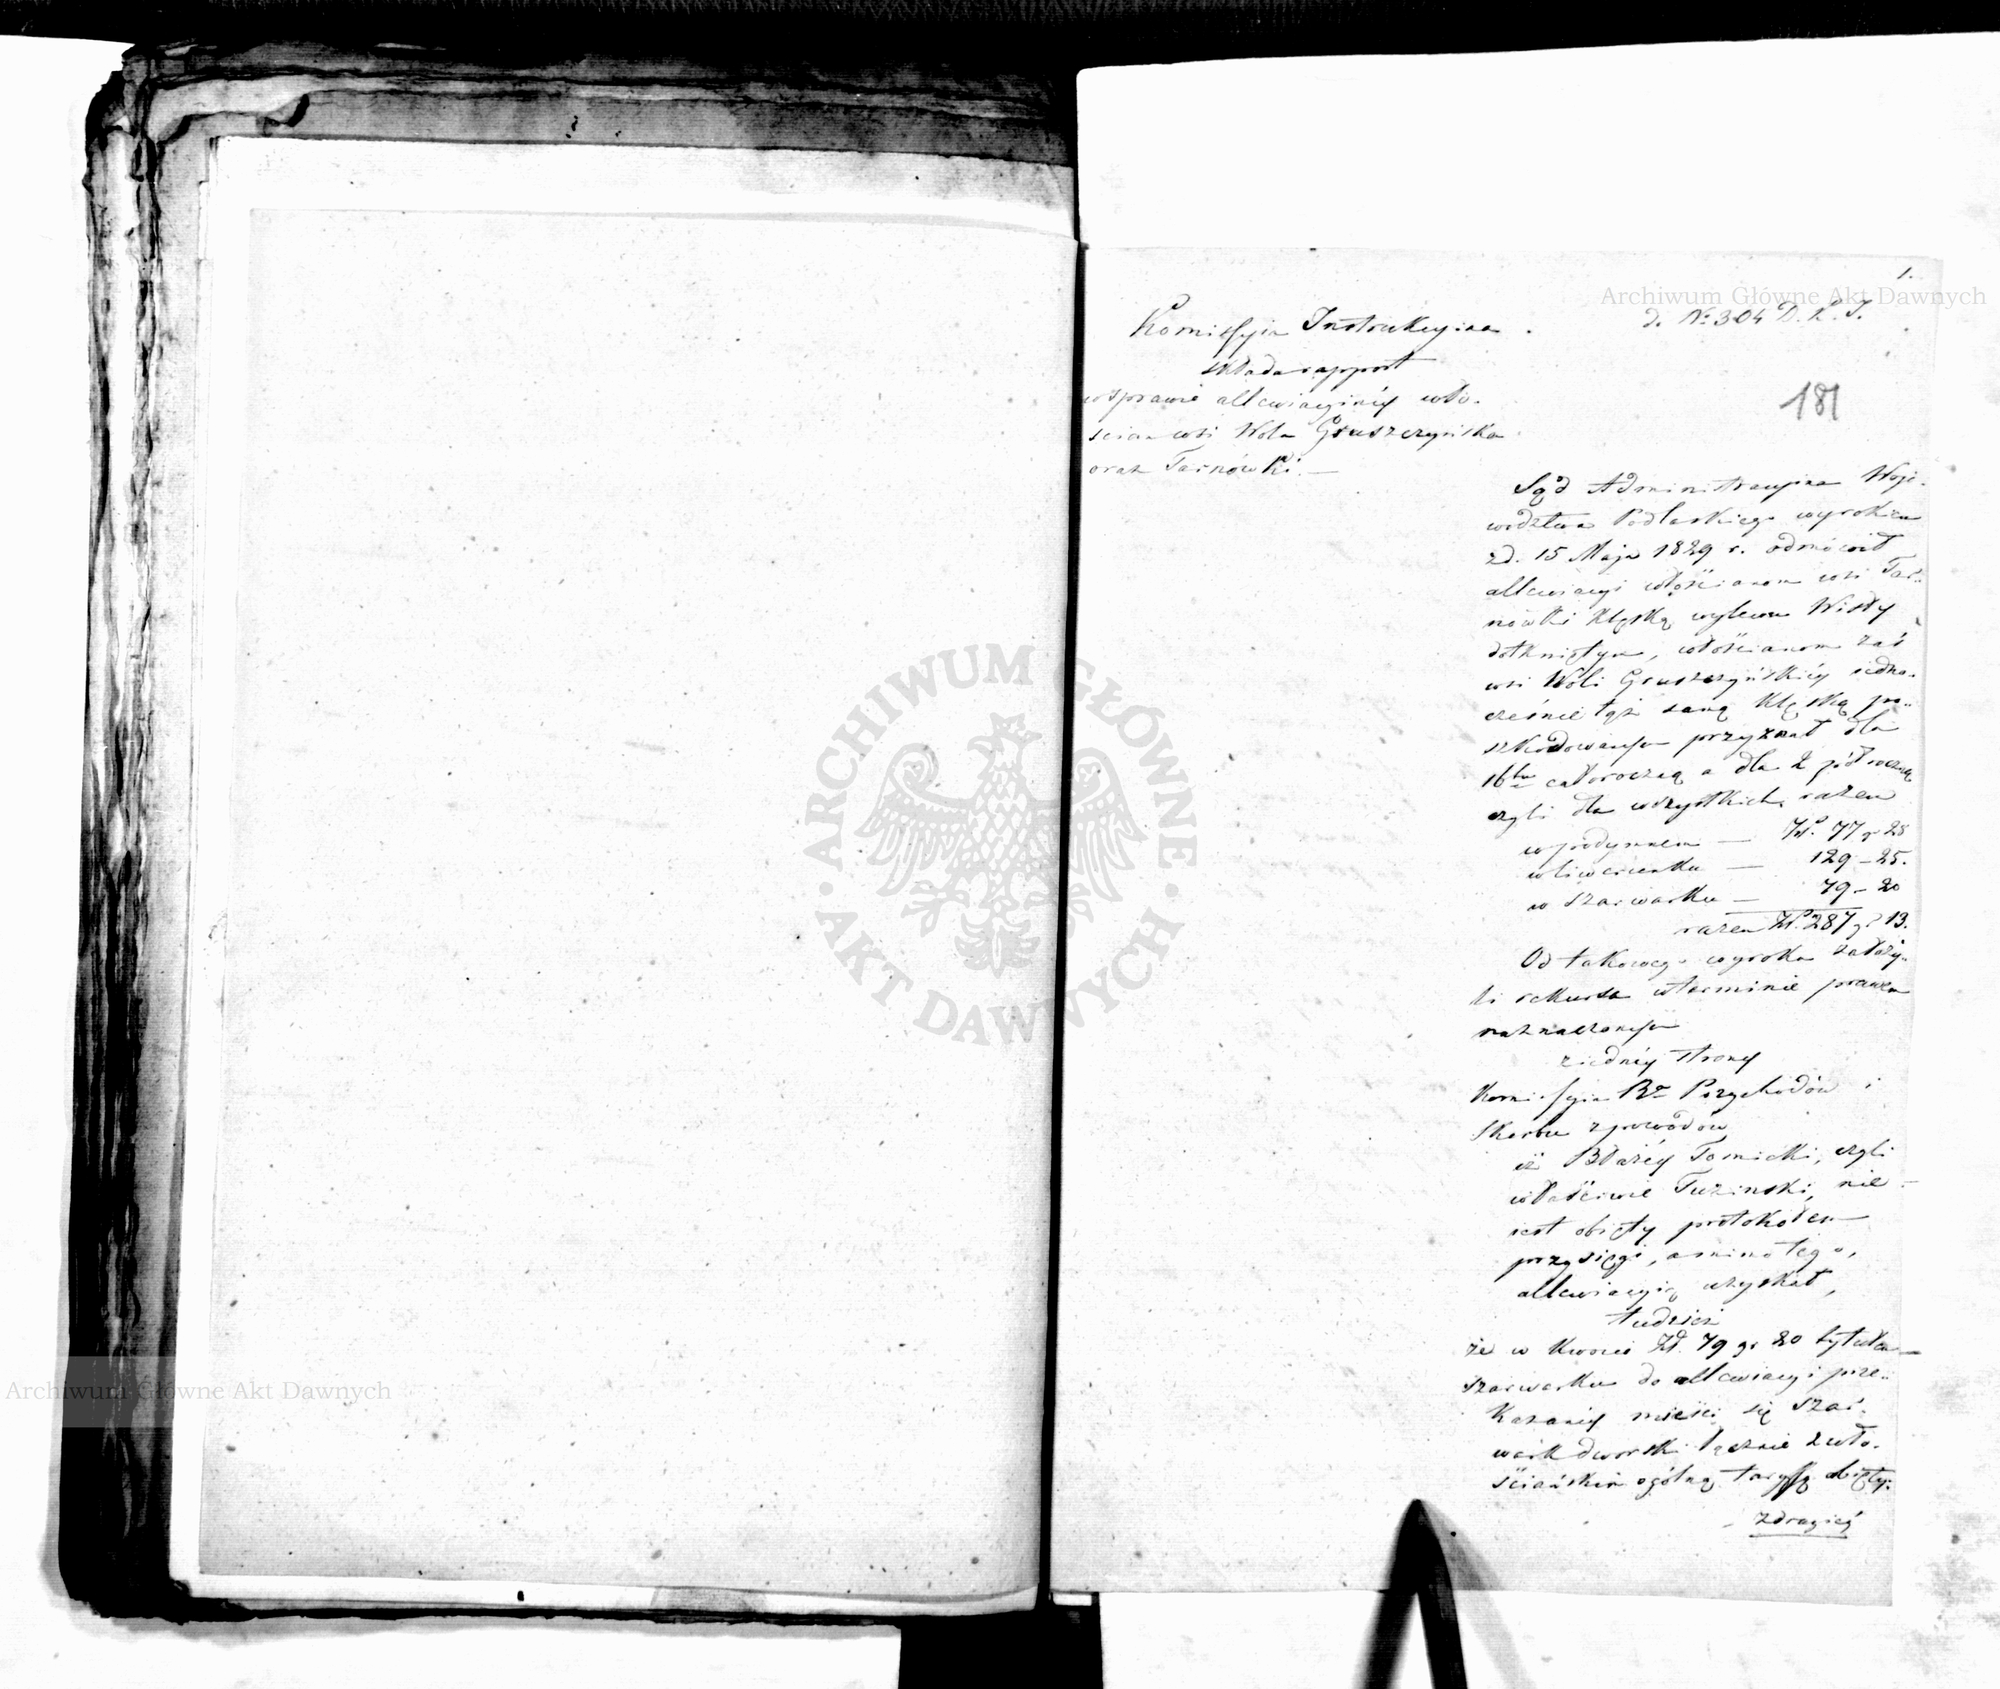 1.
Archiwum Główne Akt Dawnych
d. No 304 D. K. I.
181
Kommissyia Instrukcyina
składa rapport
w sprawie allewiacyinéy wło-
ścian wsi Wola Gruszczyńska
oraz Tarnówki. —
Sąd Administracyiny Woje-
wództwa Podlaskiego wyrokiem
z d. 15 Maja 1829 r. odmówił
allewiacyi włościanom wsi Tar-
nówki klęską wylewu Wisły
dotkniętym, włościanom zaś
wsi Woli Gruszczyńskiéy jedno-
cześnie tąż samą klęską po-
szkodowanym przyznał dla
16tu całoroczną a dla 2 półroczną
czyli dla wszystkich razem
w podymnem — Złp. 77 gr 28
w liwerunku — 129 – 25.
w szarwarku — 79 – 20
razem Złp. 287 gr 13.
Od takowego wyroku założy-
li rekursa w terminie prawem
naznaczonym
z iednéy strony
Kommissyia Rz. Przychodów i
Skarbu z powodów
iż Błażéy Tomicki, czyli
właściwie Tuzinski, nie
iest obięty protokółem
przysięgi, a mimo tego,
allewiacyią uzyskał,
tudzież
że w kwocie Złp. 79 gr 20 tytułem
szarwarku do allewiacyi prze-
kazanéy mieści się szar-
wark dworski łącznie z wło-
ściańskim ogólną taryffą obięty.
z drugiéy
ARCHIWUM GŁÓWNE AKT DAWNYCH
Archiwum Główne Akt Dawnych